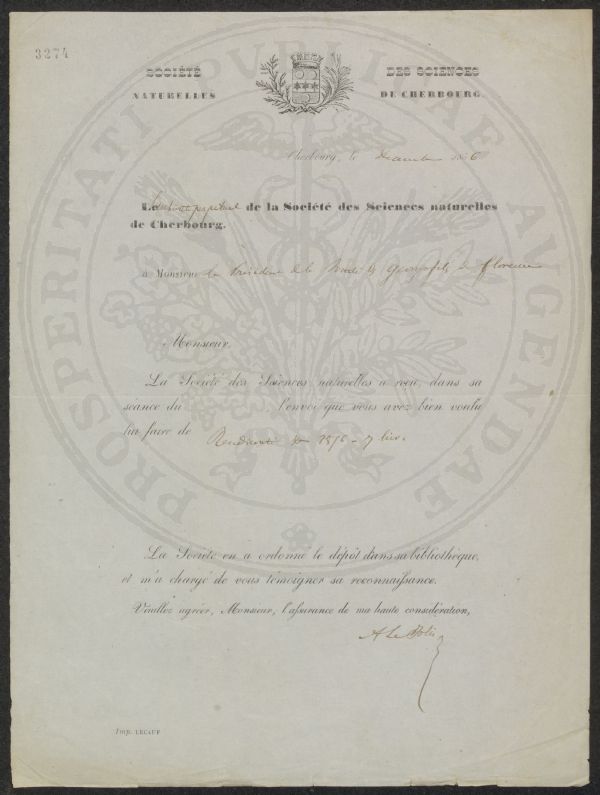 3274
SOCIÉTÉ DES SCIENCES
NATURELLES DE CHERBOURG
Cherbourg, le décembre 1856
Le perpétuel de la Société des Sciences naturelles
de Cherbourg.
à Monsieur le Président de la Société des géorgofili de Florence
Monsieur,
La Société des Sciences naturelles a reçu, dans sa
séance du , l'envoi que vous avez bien voulu
lui faire de Rendiconti de 1856 - 7 liv.
La Société en a ordonné le dépôt dans sa bibliothèque,
et m'a chargé de vous témoigner sa reconnaissance.
Veuillez agréer, Monsieur, l'assurance de ma haute considération,
A Le Jolis
Imp. LECAUF
PROSPERITATI PUBLICAE AUGENDAE